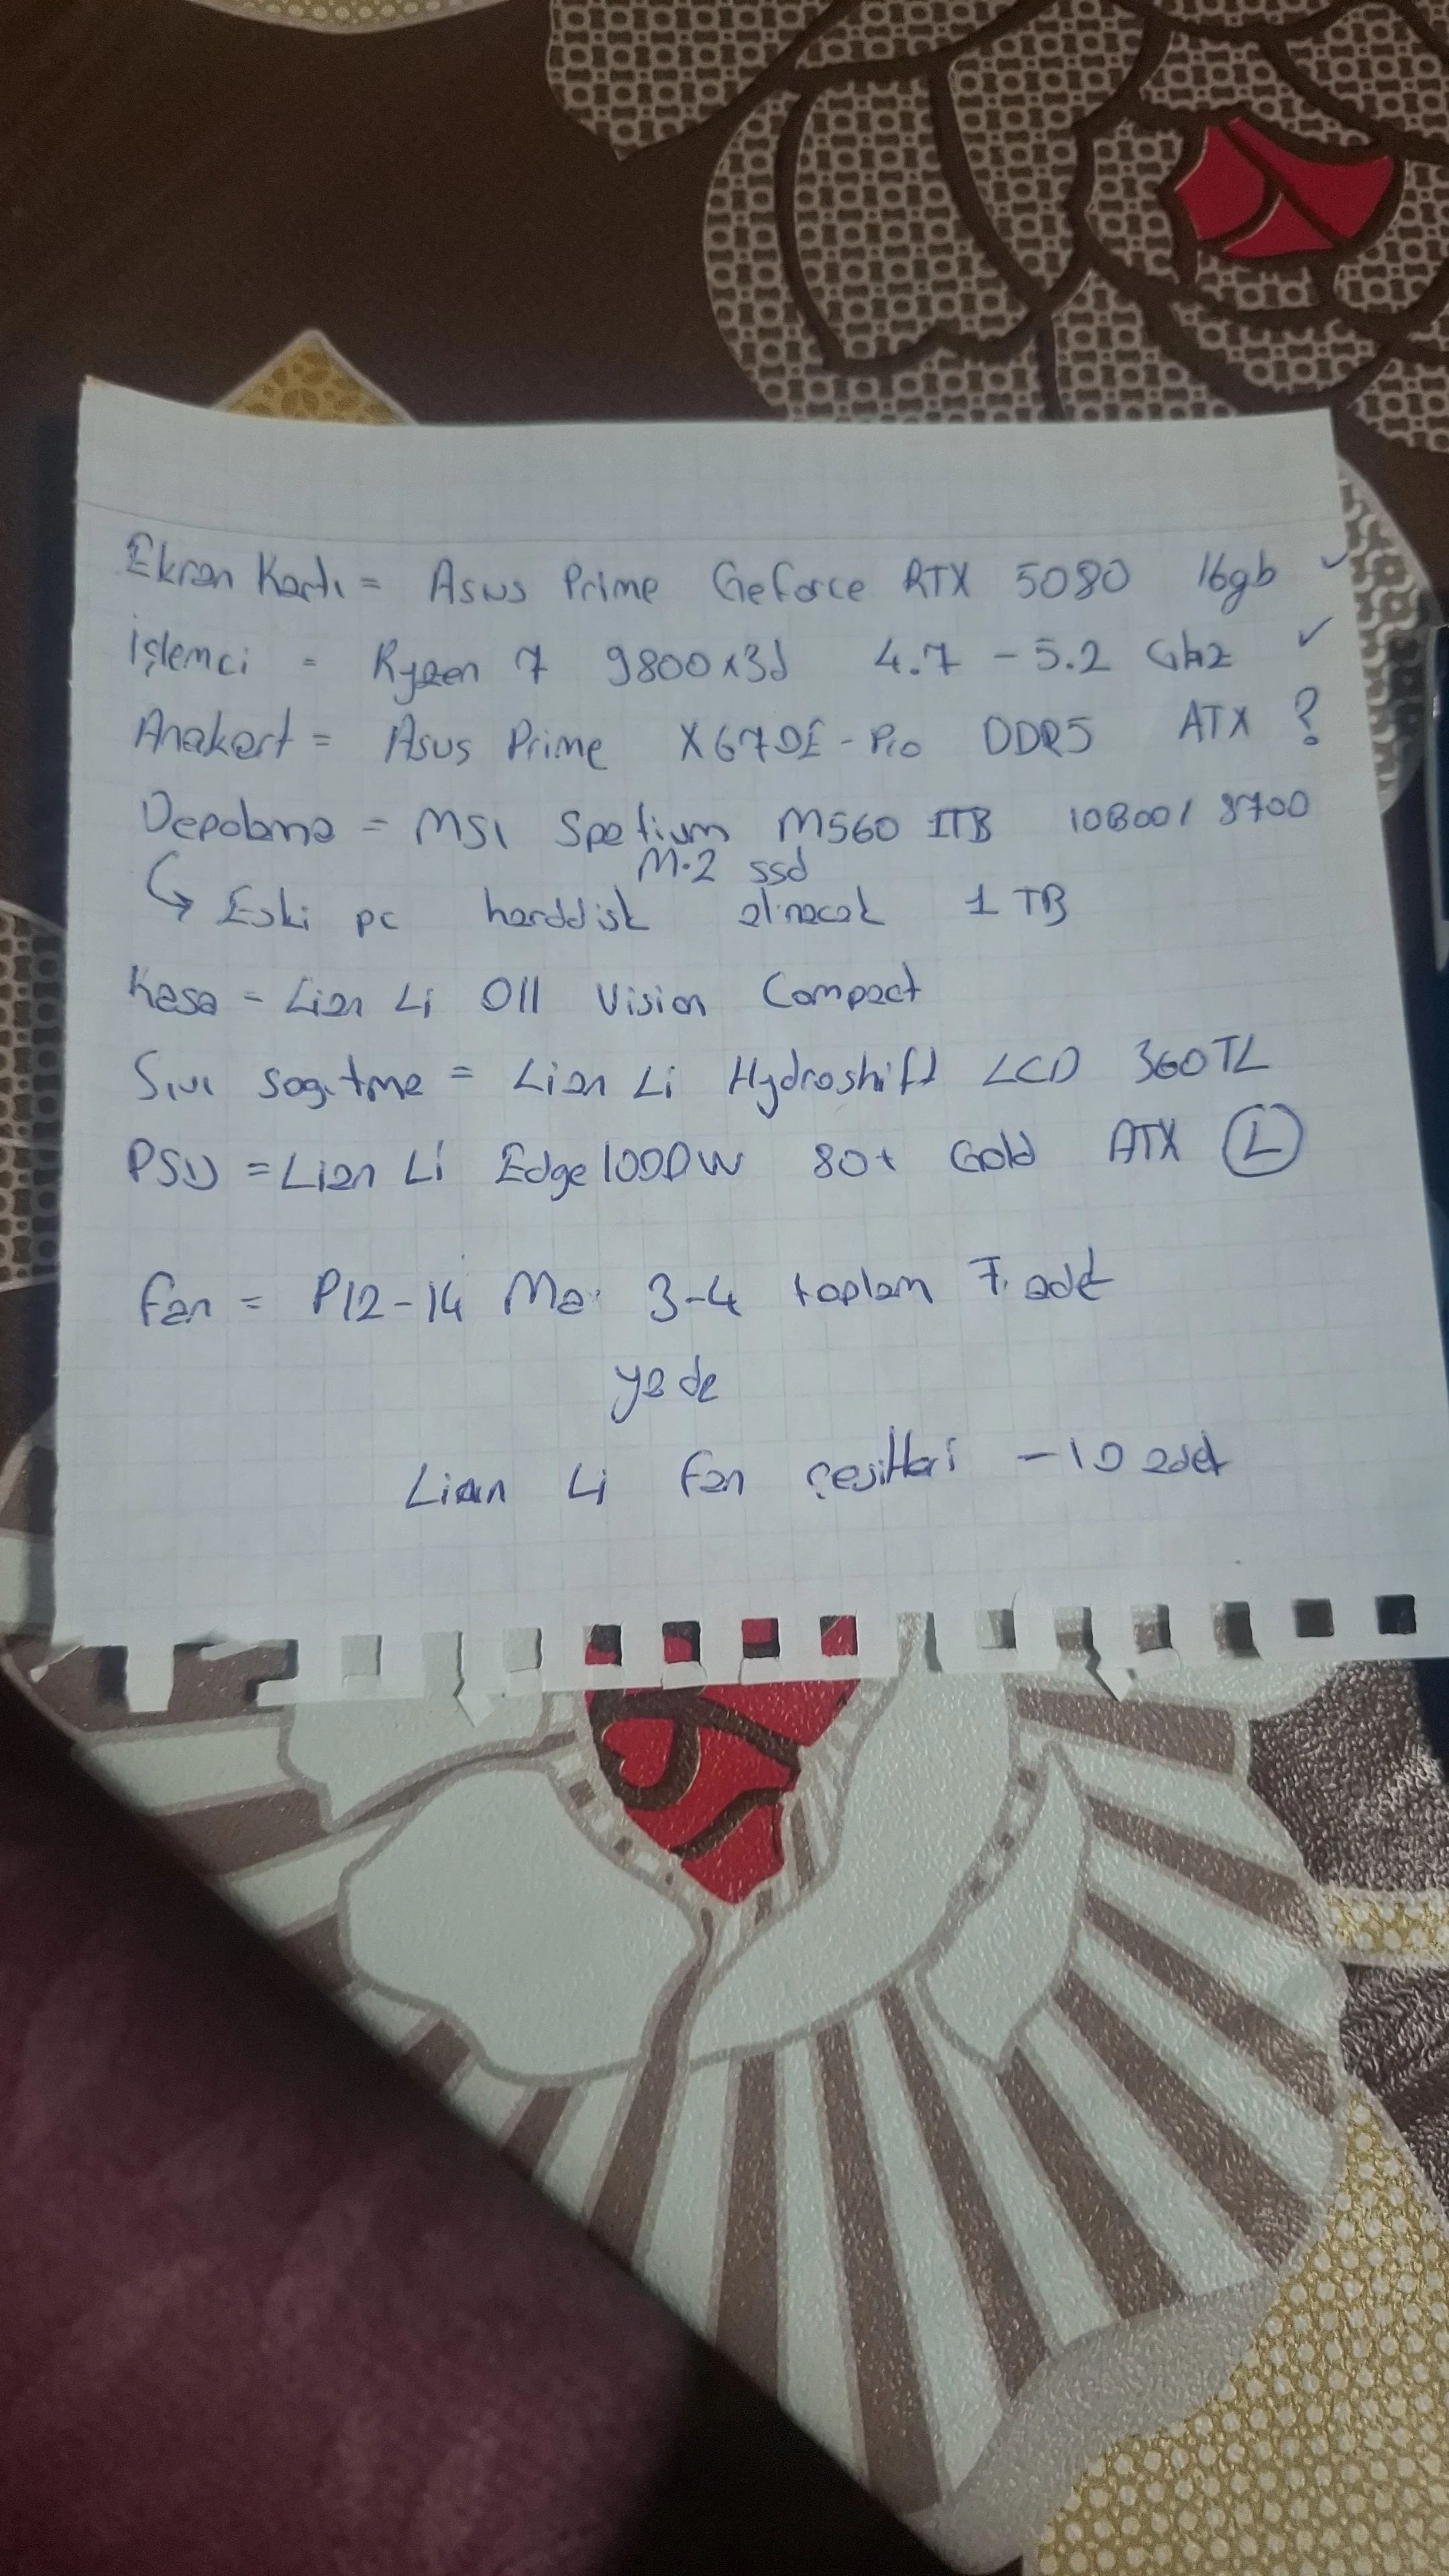 Ekran Kartı = Asus Prime Geforce RTX 5080 16gb ✓
İşlemci = Ryzen 7 9800x3d 4.7 - 5.2 Ghz ✓
Anakart = Asus Prime X670E-Pro DDR5 ATX ?
Depolama = MSI Spetium M560 1TB 10300/8700
M.2 ssd
↳ Eski pc harddisk alınacak 1 TB
Kasa = Lian Li O11 Vision Compact
Sıvı sogutma = Lian Li Hydroshift LCD 360TL
PSU = Lian Li Edge 1000W 80+ Gold ATX L
Fan = P12-14 3-4 toplam 7 adet
yada
Lian Li Fan çeşitleri - 10 adet